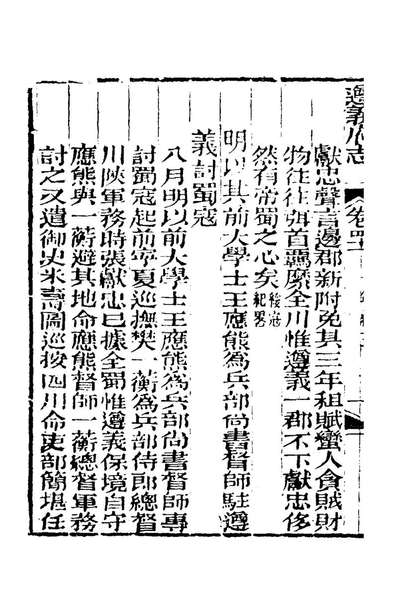 遵義府志 卷四十
獻忠聲言邊郡新附免其三年租賦蠻人貪賊財
物往往弭首羈縻全川惟遵義一郡不下獻忠侈
然有帝蜀之心矣 綏寇紀畧
明以其前大學士王應熊為兵部尚書督師駐遵
義討蜀寇
八月明以前大學士王應熊為兵部尚書督師專
討蜀寇起前寧夏巡撫樊一衡為兵部侍郎總督
川陝軍務時張獻忠已據全蜀惟遵義保境自守
應熊與一蘅避其地命應熊督師一蘅總督軍務
討之又遣御史米壽圖巡按四川命吏部簡堪任